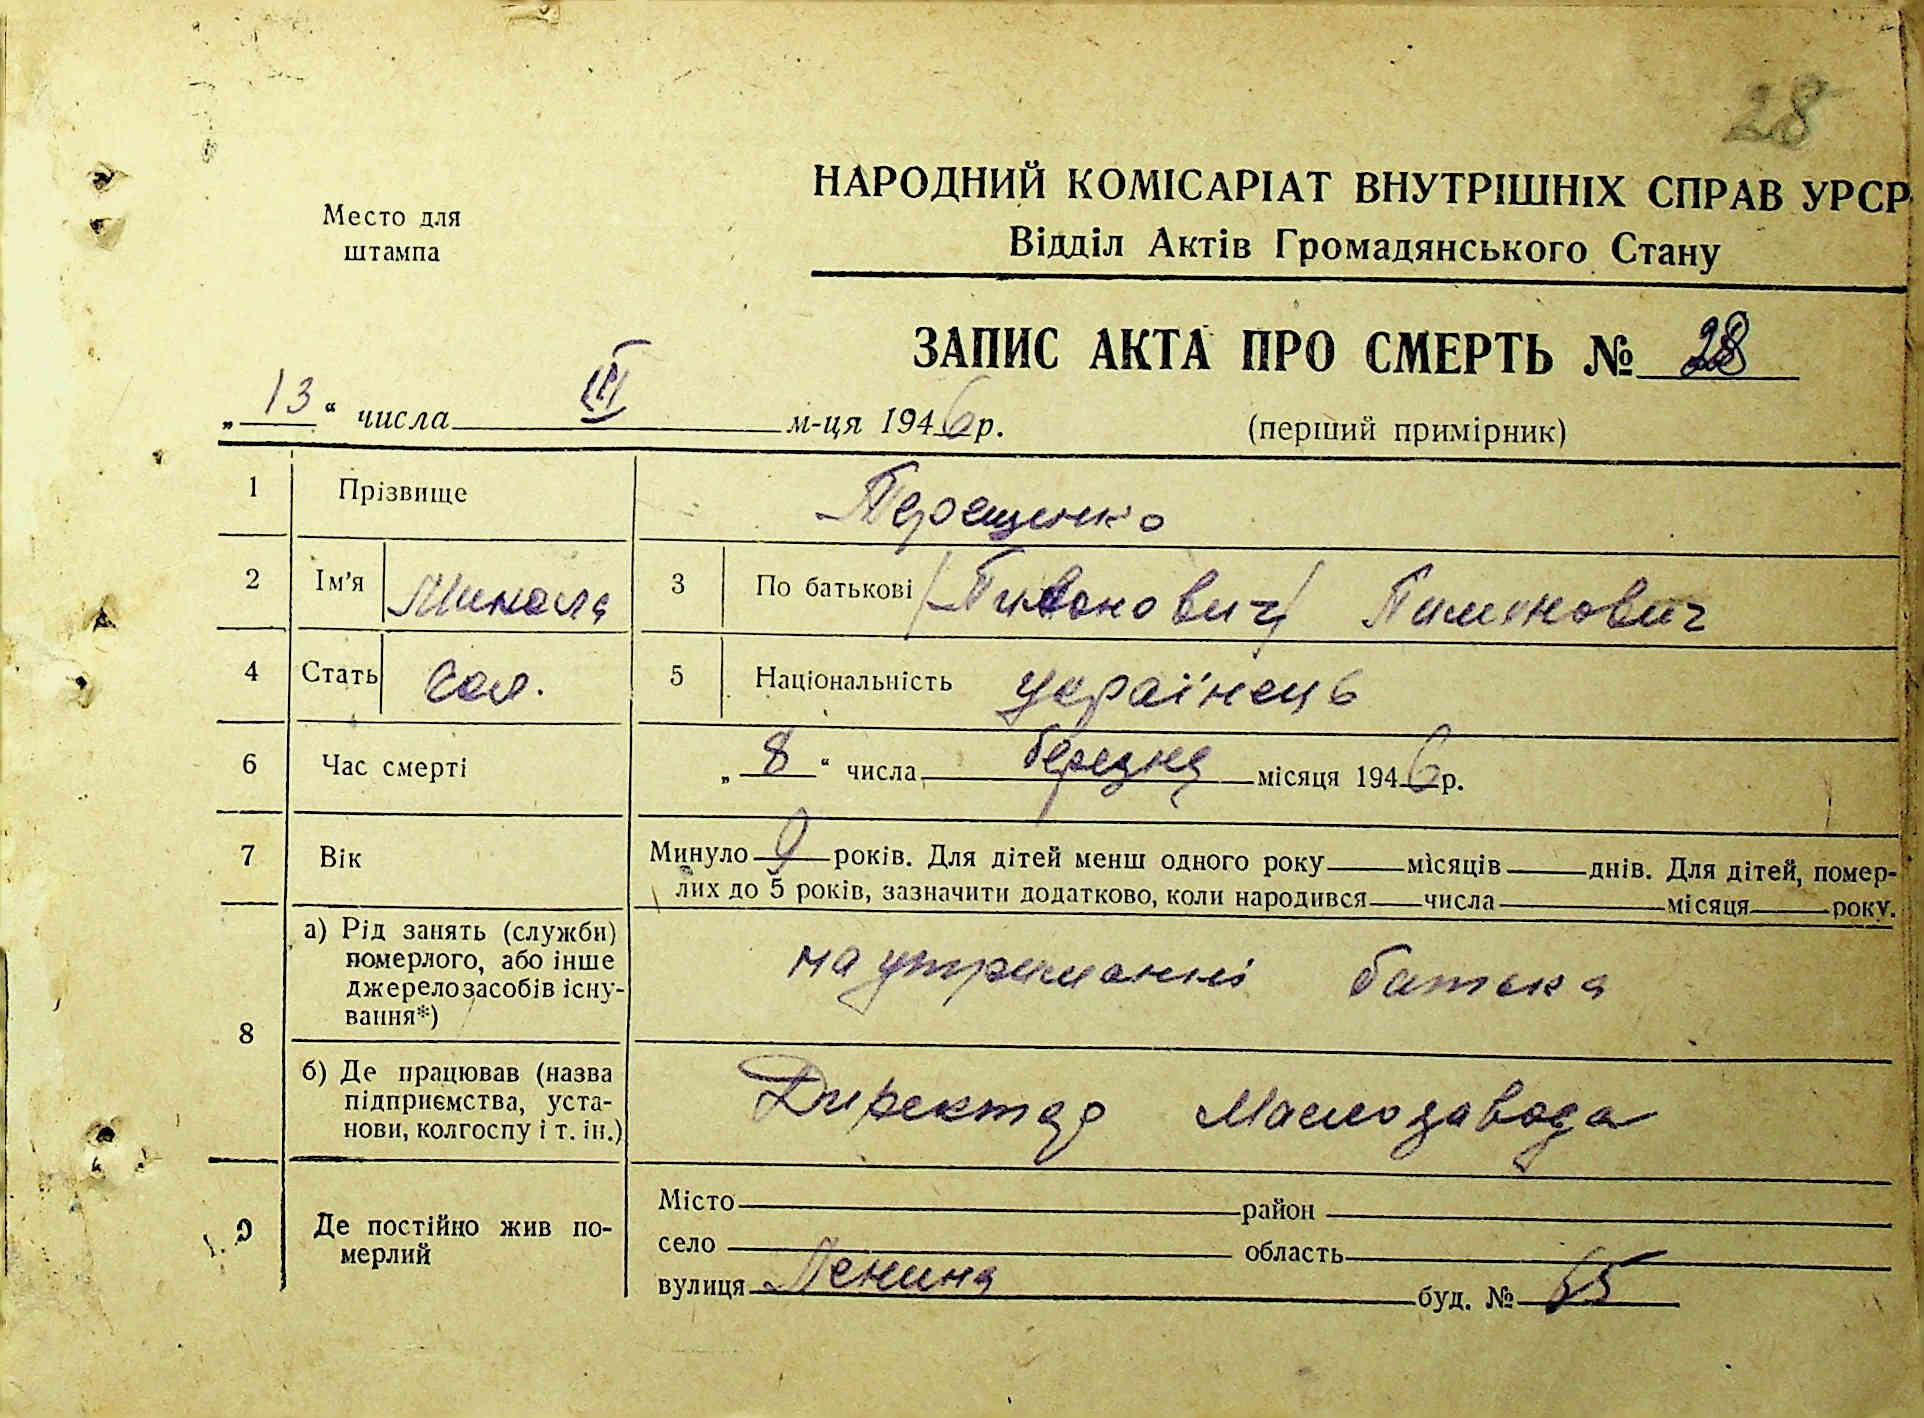 28
Место для
штампа
НАРОДНИЙ КОМІСАРІАТ ВНУТРІШНІХ СПРАВ УРСР
Відділ Актів Громадянського Стану
ЗАПИС АКТА ПРО СМЕРТЬ № 28
„13“ числа III м-ця 1946 р.
(перший примірник)
1 Прізвище Терещенко
2 Ім'я Микола 3 По батькові /Пивонович/ Пимонович
4 Стать чол. 5 Національність українець
6 Час смерті „8“ числа березня місяця 1946 р.
7 Вік Минуло 9 років. Для дітей менш одного року місяців днів. Для дітей, помер-
лих до 5 років, зазначити додатково, коли народився числа місяця року.
8 а) Рід занять (служби)
померлого, або інше
джерело засобів існу-
вання*)
на утриманні батька
б) Де працював (назва
підприємства, уста-
нови, колгоспу і т. ін.)
Директор Маслозавода
9 Де постійно жив по-
мерлий
Місто район
село область
вулиця Ленина буд. № 65